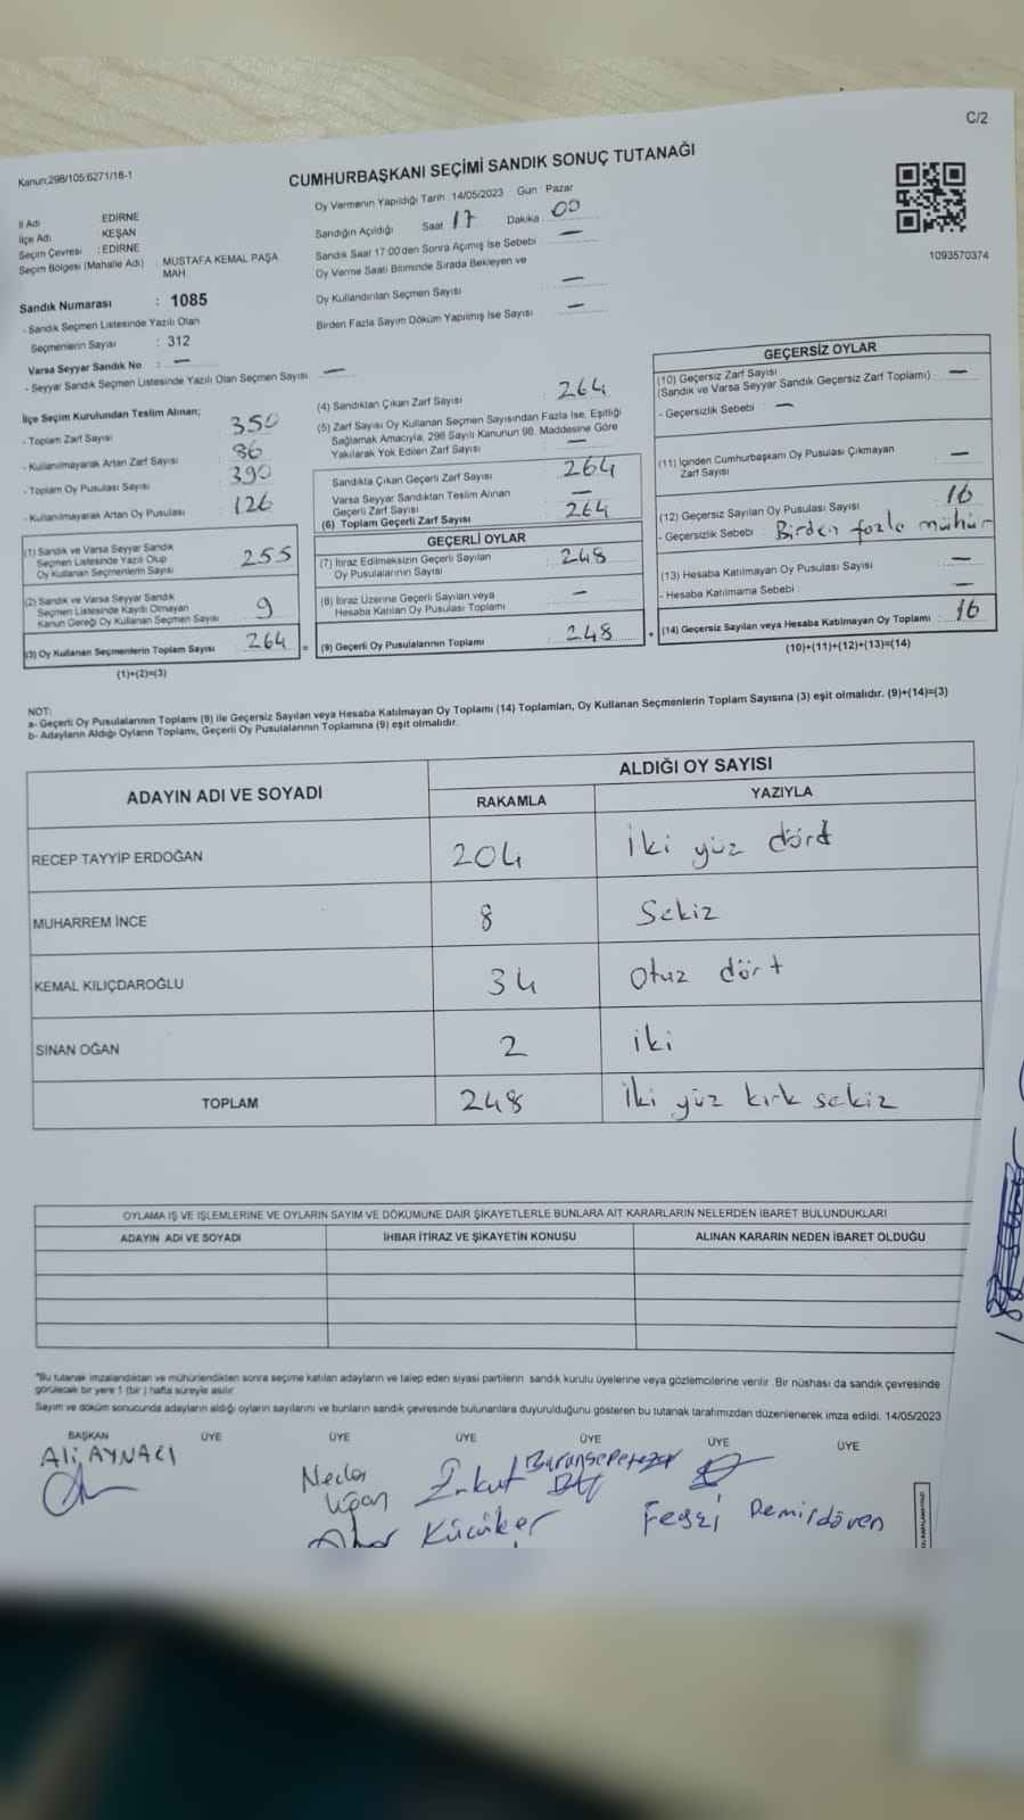 C/2
Kanun:298/105:6271/18-1
CUMHURBAŞKANI SEÇİMİ SANDIK SONUÇ TUTANAĞI
Oy Vermenin Yapıldığı Tarih : 14/05/2023 Gün : Pazar
İl Adı EDİRNE
İlçe Adı KEŞAN
Seçim Çevresi : EDİRNE
Seçim Bölgesi (Mahalle Adı) : MUSTAFA KEMAL PAŞA MAH.
Sandığın Açıldığı Saat 17 Dakika 00
Sandık Saat 17:00'den Sonra Açılmış İse Sebebi —
Oy Verme Saati Bitiminde Sırada Bekleyen ve
Oy Kullandırılan Seçmen Sayısı —
Birden Fazla Sayım Döküm Yapılmış İse Sayısı —
1093570374
Sandık Numarası : 1085
- Sandık Seçmen Listesinde Yazılı Olan
Seçmenlerin Sayısı : 312
Varsa Seyyar Sandık No : —
- Seyyar Sandık Seçmen Listesinde Yazılı Olan Seçmen Sayısı —
İlçe Seçim Kurulundan Teslim Alınan;
- Toplam Zarf Sayısı 350
- Kullanılmayarak Artan Zarf Sayısı 86
- Toplam Oy Pusulası Sayısı 390
- Kullanılmayarak Artan Oy Pusulası 126
(1) Sandık ve Varsa Seyyar Sandık
Seçmen Listesinde Yazılı Olup
Oy Kullanan Seçmenlerin Sayısı 255
(2) Sandık ve Varsa Seyyar Sandık
Seçmen Listesinde Kaydı Olmayan
Kanun Gereği Oy Kullanan Seçmen Sayısı 9
(3) Oy Kullanan Seçmenlerin Toplam Sayısı 264
(1)+(2)=(3)
(4) Sandıktan Çıkan Zarf Sayısı 264
(5) Zarf Sayısı Oy Kullanan Seçmen Sayısından Fazla İse, Eşitliği
Sağlamak Amacıyla, 298 Sayılı Kanunun 98. Maddesine Göre
Yakılarak Yok Edilen Zarf Sayısı —
Sandıkta Çıkan Geçerli Zarf Sayısı 264
Varsa Seyyar Sandıktan Teslim Alınan
Geçerli Zarf Sayısı —
(6) Toplam Geçerli Zarf Sayısı 264
GEÇERLİ OYLAR
(7) İtiraz Edilmeksizin Geçerli Sayılan
Oy Pusulalarının Sayısı 248
(8) İtiraz Üzerine Geçerli Sayılan veya
Hesaba Katılan Oy Pusulası Toplamı —
(9) Geçerli Oy Pusulalarının Toplamı 248
GEÇERSİZ OYLAR
(10) Geçersiz Zarf Sayısı
(Sandık ve Varsa Seyyar Sandık Geçersiz Zarf Toplamı) —
- Geçersizlik Sebebi : —
(11) İçinden Cumhurbaşkanı Oy Pusulası Çıkmayan
Zarf Sayısı —
(12) Geçersiz Sayılan Oy Pusulası Sayısı 16
- Geçersizlik Sebebi : Birden fazla mühür
(13) Hesaba Katılmayan Oy Pusulası Sayısı —
- Hesaba Katılmama Sebebi : —
(14) Geçersiz Sayılan veya Hesaba Katılmayan Oy Toplamı 16
(10)+(11)+(12)+(13)=(14)
NOT:
a- Geçerli Oy Pusulalarının Toplamı (9) ile Geçersiz Sayılan veya Hesaba Katılmayan Oy Toplamı (14) Toplamları, Oy Kullanan Seçmenlerin Toplam Sayısına (3) eşit olmalıdır. (9)+(14)=(3)
b- Adayların Aldığı Oyların Toplamı, Geçerli Oy Pusulalarının Toplamına (9) eşit olmalıdır.
ADAYIN ADI VE SOYADI
ALDIĞI OY SAYISI
RAKAMLA YAZIYLA
RECEP TAYYİP ERDOĞAN 204 İki yüz dört
MUHARREM İNCE 8 Sekiz
KEMAL KILIÇDAROĞLU 34 Otuz dört
SİNAN OĞAN 2 iki
TOPLAM 248 İki yüz kırk sekiz
OYLAMA İŞ VE İŞLEMLERİNE VE OYLARIN SAYIM VE DÖKÜMÜNE DAİR ŞİKAYETLERLE BUNLARA AİT KARARLARIN NELERDEN İBARET BULUNDUKLARI
ADAYIN ADI VE SOYADI İHBAR İTİRAZ VE ŞİKAYETİN KONUSU ALINAN KARARIN NEDEN İBARET OLDUĞU
"Bu tutanak imzalandıktan ve mühürlendikten sonra seçime katılan adayların ve talep eden siyasi partilerin sandık kurulu üyelerine veya gözlemcilerine verilir. Bir nüshası da sandık çevresinde
görülecek bir yere 1 (bir) hafta süreyle asılır.
Sayım ve döküm sonucunda adayların aldığı oyların sayılarını ve bunların sandık çevresinde bulunanlara duyurulduğunu gösteren bu tutanak tarafımızdan düzenlenerek imza edildi. 14/05/2023
BAŞKAN ÜYE ÜYE ÜYE ÜYE ÜYE ÜYE
Ali AYNACI
Küçüker
Demirdöven